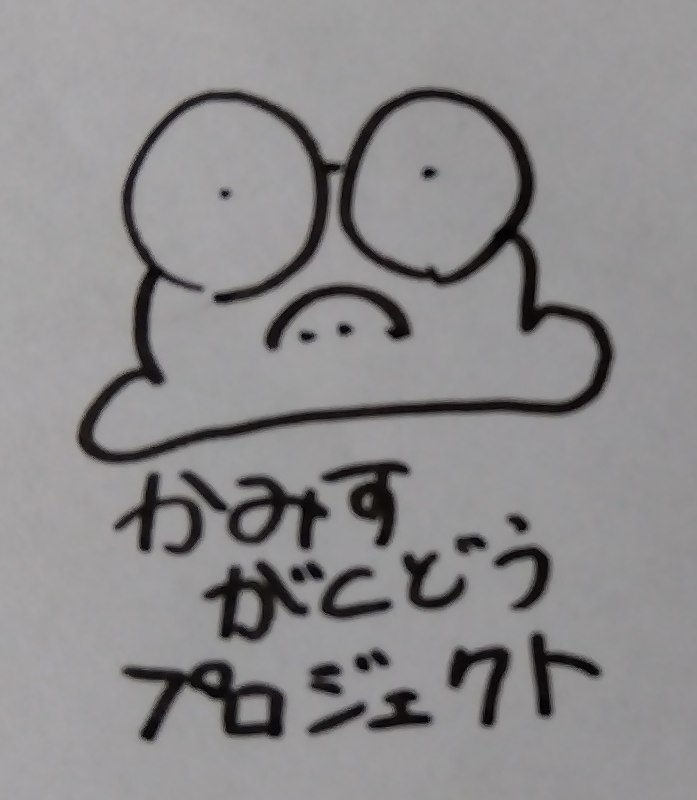 かみす
がくどう
プロジェクト